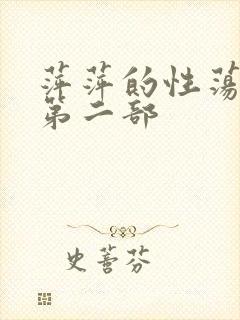 萍萍的性荡
第二部
史蔷芬